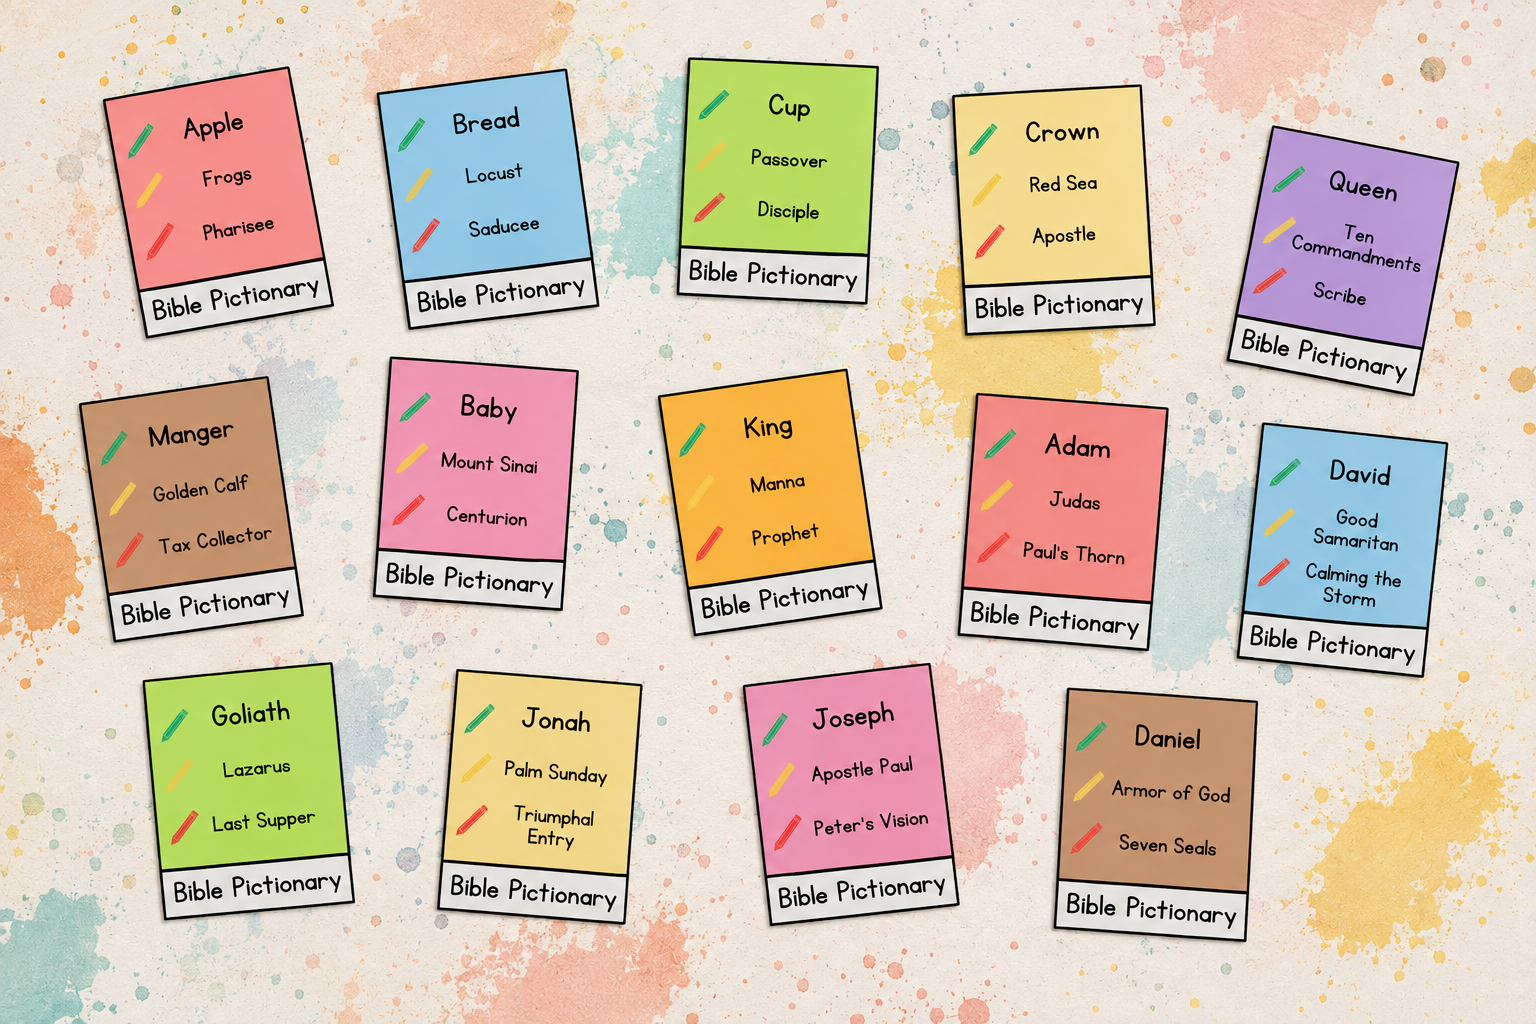 Apple
Frogs
Pharisee
Bible Pictionary
Bread
Locust
Saducee
Bible Pictionary
Cup
Passover
Disciple
Bible Pictionary
Crown
Red Sea
Apostle
Bible Pictionary
Queen
Ten
Commandments
Scribe
Bible Pictionary
Manger
Golden Calf
Tax Collector
Bible Pictionary
Baby
Mount Sinai
Centurion
Bible Pictionary
King
Manna
Prophet
Bible Pictionary
Adam
Judas
Paul's Thorn
Bible Pictionary
David
Good
Samaritan
Calming the
Storm
Bible Pictionary
Goliath
Lazarus
Last Supper
Bible Pictionary
Jonah
Palm Sunday
Triumphal
Entry
Bible Pictionary
Joseph
Apostle Paul
Peter's Vision
Bible Pictionary
Daniel
Armor of God
Seven Seals
Bible Pictionary